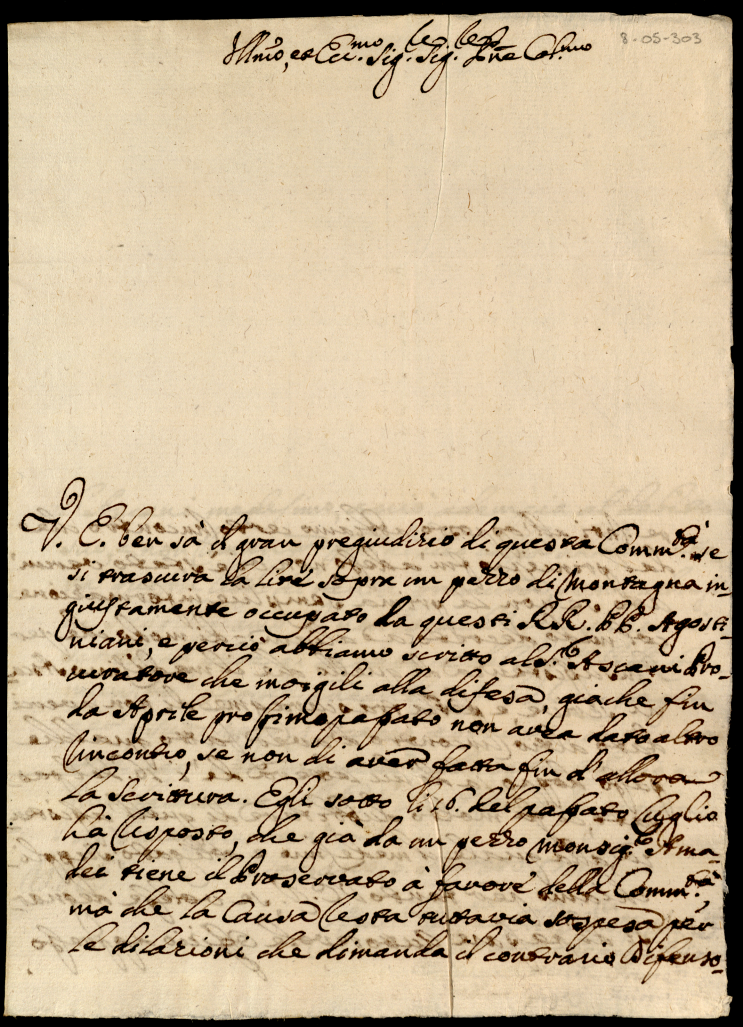 8-05-303
Ill.mo, et Ecc.mo Sig.re Sig.re P.ne Col.mo
V. E. ben sà il gran pregiudizio di questa Comm.tà se
si trascura la lite sopra un pezzo di Montagna in-
giustamente occupato da questi RR. PP. Agosti-
niani, e perciò abbiamo scritto al S.r Ascani Pro-
curatore che invigili alla difesa, giache fin
da Aprile prossimo passato non avea dato altro
riscontro, se non di aver fatta fin d'allora
la scrittura. Egli sotto li 26. del passato Luglio
hà risposto, che già da un pezzo Monsig.r Ama-
dei tiene il Proservato à favore della Comm.tà,
mà che la Causa resta tuttavia sospesa per
le dilazioni che dimanda il contrario Difenso-